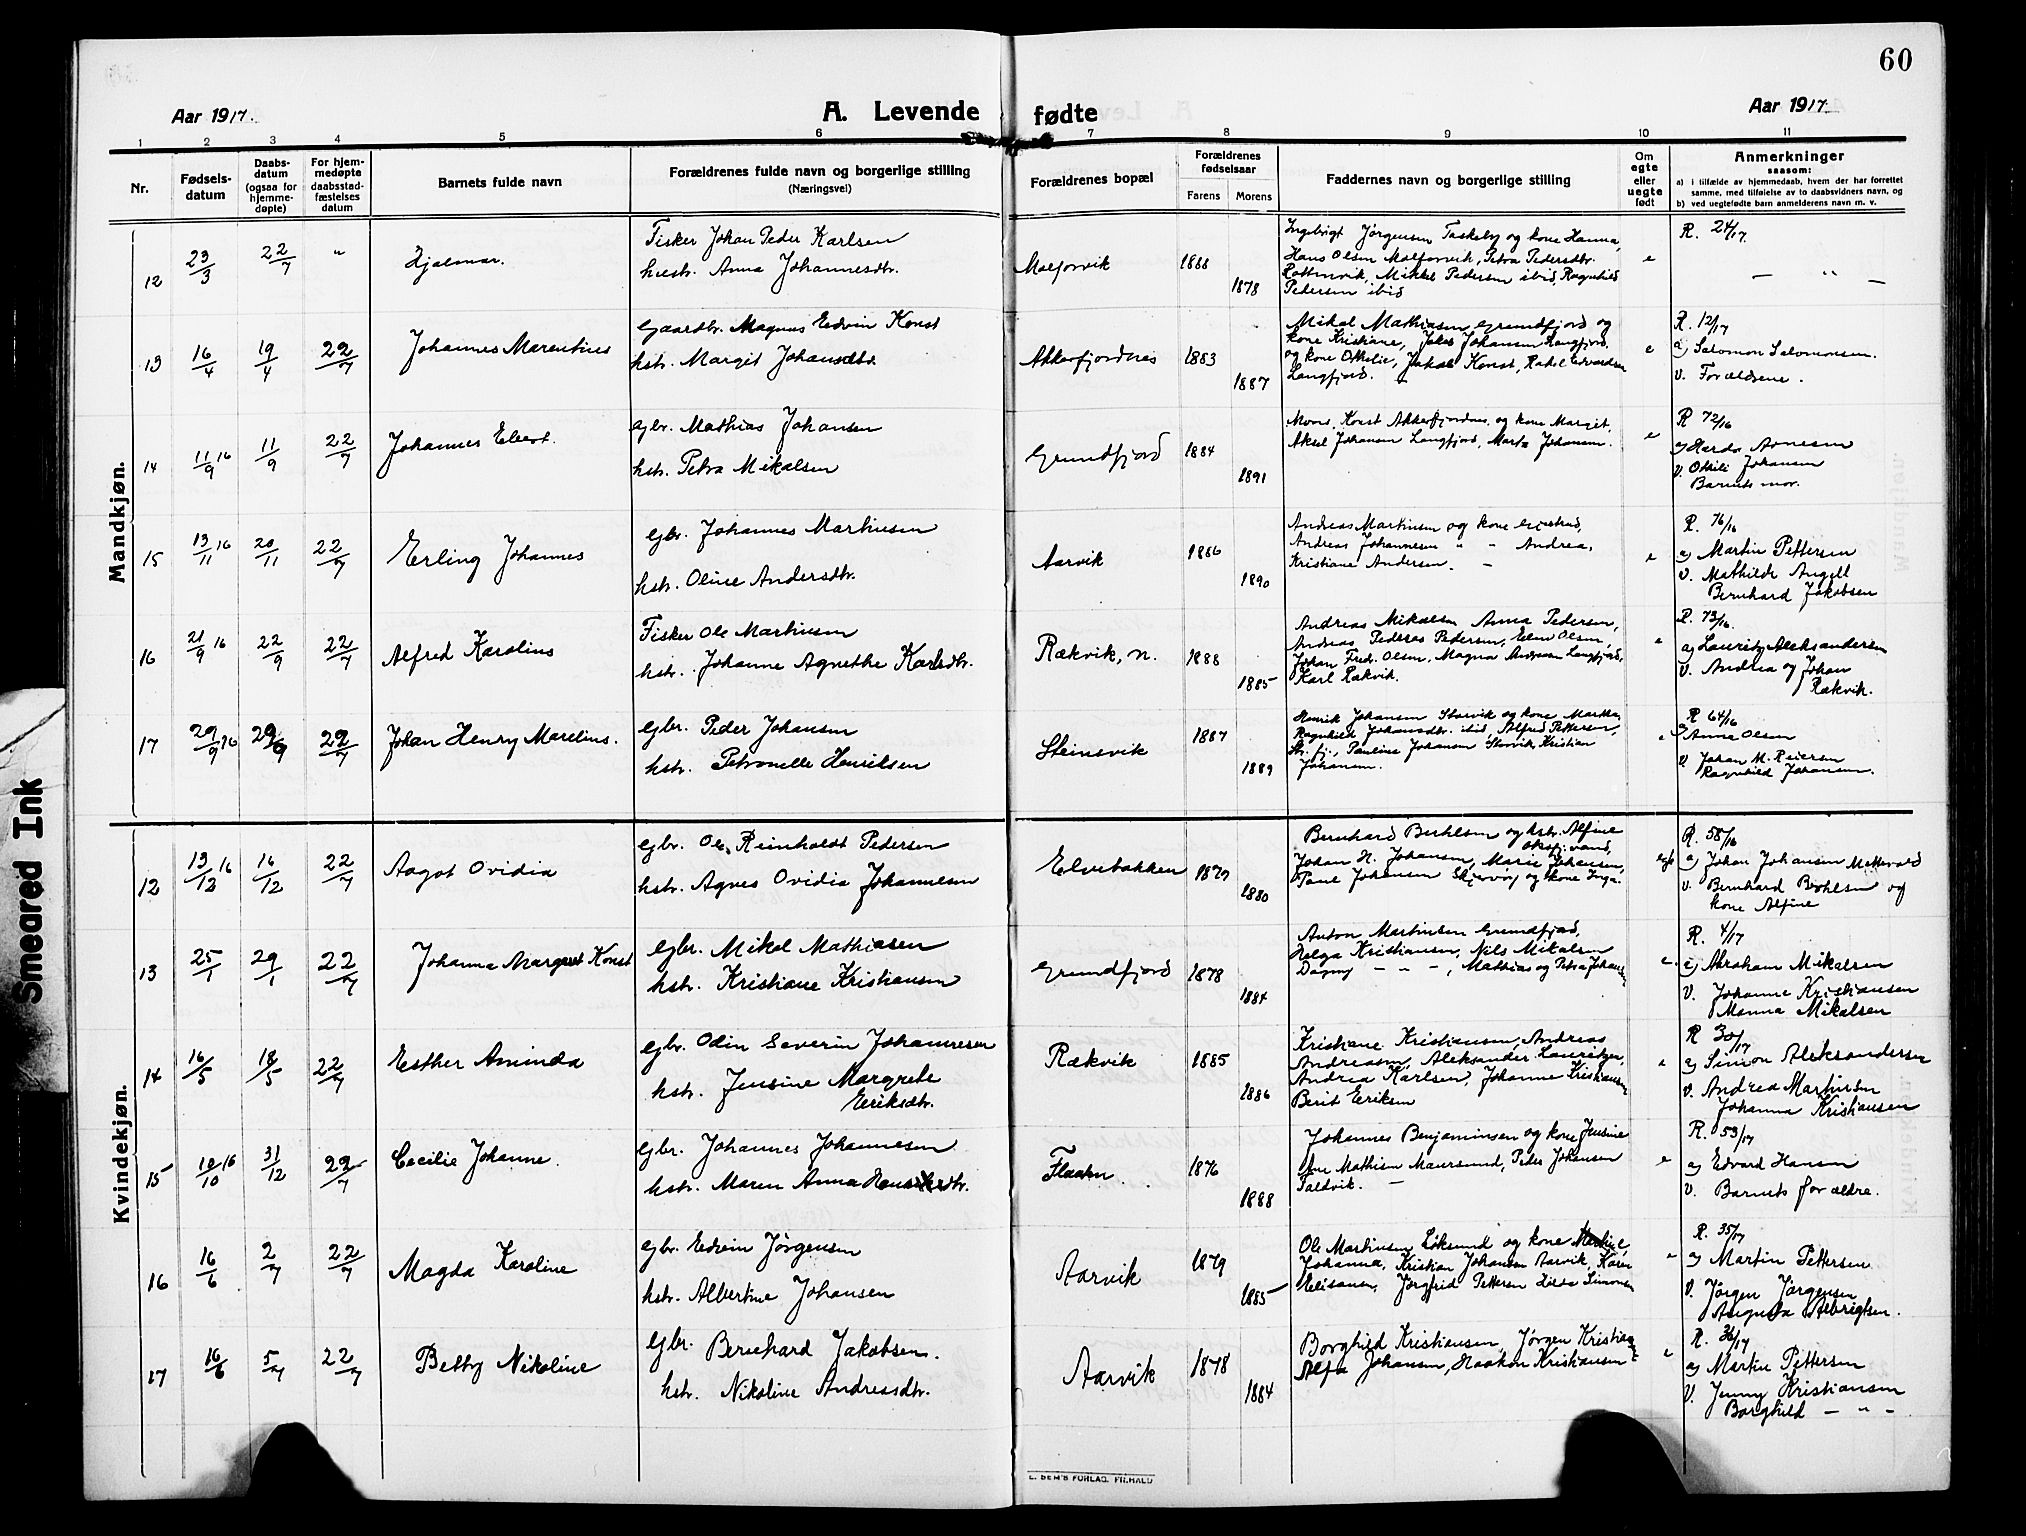 60
Aar 1917.
A. Levende fødte
Aar 1917.
1 2 3 4 5 6 7 8 9 10 11
Nr.
Fødsels-
datum
Daabs-
datum
(ogsaa for
hjemme-
døpte)
For hjem-
medøpte
daabsstad-
fæstelses
datum
Barnets fulde navn
Forældrenes fulde navn og borgerlige stilling
(Næringsvei)
Forældrenes bopæl
Forældrenes
fødselsaar
Farens Morens
Faddernes navn og borgerlige stilling
Om
egte
eller
uegte
født
Anmerkninger
saasom:
a) i tilfælde av hjemmedaab, hvem der har forrettet
samme, med tilføielse av to daabsvidners navn, og
b) ved uegtefødte barn anmelderens navn m. v.
Mandkjøn.
12 23/3 22/7 " Hjalmar.
Fisker Johan Peder Karlsen
hustr. Anna Johannesdtr.
Malforvik 1888 1878
Ingebrigt Jørgensen Taskeby og kone Hanna,
Hans Olsen Malforvik, Petra Pedersdtr.
Rottenvik, Mikkel Pedersen ibid, Ragnhild
Pedersen ibid
e
R. 24/17.
— " —
13 16/4 19/4 22/7 Johannes Marentius
Gaardbr. Magnus Edvin Konst
hstr. Margit Johansdtr.
Akkerfjordnes 1883 1887
Mikal Mathiasen Grundfjord og
kone Kristiane, Jakob Johansen Langfjord,
og kone Othelie, Jakob Konst, Rakel Edvardsen
Langfjord. —
e
R. 12/17
a) Salomon Salomonsen.
V. Forældrene.
14 11/9 16 11/9 22/7 Johannes Ebert.
gbr. Mathias Johansen
hstr. Petra Mikalsen
Grundfjord 1884 1891
Mons. Konst Akkerfjordnes og kone Margit,
Aksel Johansen Langfjord, Marta Johansen.
e
R 72/16
a) Hardor Arnesen
V. Othili Johansen
Barnets mor.
15 13/11 16 20/11 22/7 Erling Johannes
gbr. Johannes Martinsen
hstr. Oline Andersdtr.
Aarvik 1886 1890
Andreas Martinsen og kone Gjertrud,
Andreas Johannesen " - Andrea,
Kristiane Andersen. —
e
R. 76/16
a) Martin Pettersen
V. Mathilde Angell
Bernhard Jakobsen
16 21/9 16 22/9 22/7 Alfred Karolius
Fisker Ole Martinsen
hstr. Johanne Agnethe Karlsdtr.
Rækvik, n. 1888 1885
Andreas Mikalsen Anna Pedersen,
Andreas Pedersen, Elen Olsen,
Johan Fred. Olsen, Magna Andresen Langfjord,
Karl Rækvik.
e
R. 73/16.
a) Lauritz Aleksandersen
V. Andrea og Johan
Rækvik.
17 29/9 16 29/9 22/7 Johan Henry Marelius.
gbr. Peder Johansen
hstr. Petronelle Henriksen
Steinsvik 1887 1889
Henrik Johansen Storvik og kone Martha,
Ragnhild Johansdtr. ibid, Alfred Pettersen,
Str. fj., Pauline Johansen Storvik, Kristian
Johansen.
e
R 64/16
a) Anne Olsen
V. Johan M. Reiersen
Ragnhild Johansen.
Kvindekjøn.
12 13/12 16 16/12 22/7 Aagot Ovidia
gbr. Ole Reinholdt Pedersen
hstr. Agnes Ovidia Johannesen
Elvebakken 1879 1880
Bernhard Berhlsen og hstr. Alfine
Oksfj.vand,
Johan H. Johansen, Marie Johansen,
Paul Johansen Skjervøy og kone Inga.
egte
R. 58/16
a) Johan Johansen Mettevold
V. Bernhard Berhlsen og
kone Alfine
13 25/1 29/1 22/7 Johanna Margret Konst
gbr. Mikal Mathiasen
hstr. Kristiane Kristiansen
Grundfjord 1878 1884
Anton Martinsen Grundfjord,
Helga Kristiansen, Nils Mikalsen
Dagny — " —, Mathias og Petra Johansen
e.
R. 4/17
a) Abraham Mikalsen
V. Johanne Kristiansen
Manna Mikalsen
14 16/5 18/5 22/7 Esther Aminda
gbr. Odin Severin Johannesen
hstr. Jensine Margrete
Eriksdtr.
Rækvik 1885 1886
Kristiane Kristiansen, Andreas
Andreasen, Aleksander Lauritzen,
Andrea Karlsen, Johanne Kristiansen
Berit Eriksen
e
R 30/17
a) Simon Aleksandersen
V. Andrea Martinsen
Johanna Kristiansen
15 10/10 16 31/12 22/7 Cecilie Johanne.
gbr. Johannes Johannesen
hstr. Maren Anna Henriksdtr.
Flaaten. 1876 1888
Johannes Benjaminsen og kone Jensine
Ane Mathisen Maursund, Peder Johansen
Taldvik. —
e
R. 53/17
a) Edvard Hansen
V. Barnets forældre.
16 16/6 2/7 22/7 Magda Karoline
gbr. Edvin Jørgensen
hstr. Albertine Johansen
Aarvik 1879 1885
Ole Martinsen Løksund og kone Martine,
Johanna, Kristian Johansen Aarvik, Karen
Elisansen, Jørgfrid Pettersen Hilda Simonsen
e
R. 35/17
a) Martin Pettersen
V. Jørgen Jørgensen
Augusta Albrigtsen.
17 16/6 5/7 22/7 Betty Nikoline
gbr. Bernhard Jakobsen.
hstr. Nikoline Andreasdtr.
Aarvik 1878 1884
Borghild Kristiansen, Jørgen Kristiansen
Alfa Johansen, Haakon Kristiansen
e
R. 36/17
a) Martin Pettersen
V. Jenny Kristiansen
Borghild — " —
Smeared Ink
E. SEM'S FORLAG. FR.HALD